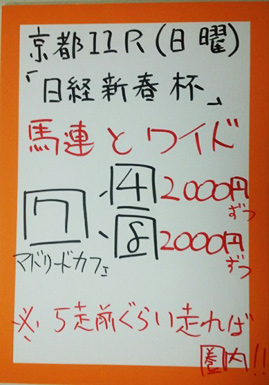 京都11R(日曜)
「日経新春杯」
馬連とワイド
7、4 2000円ずつ
、8 2000円ずつ
マドリードカフェ
※5走前ぐらい走れば
圏内!!